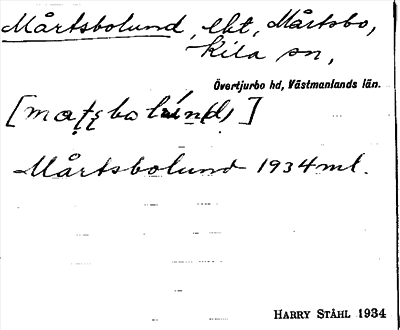 Mårtsbolund, lht, Mårtsbo,
Kila sn,
Övertjurbo hd, Västmanlands län.
Mårtsbolund 1934 ml.
HARRY STÅHL 1934